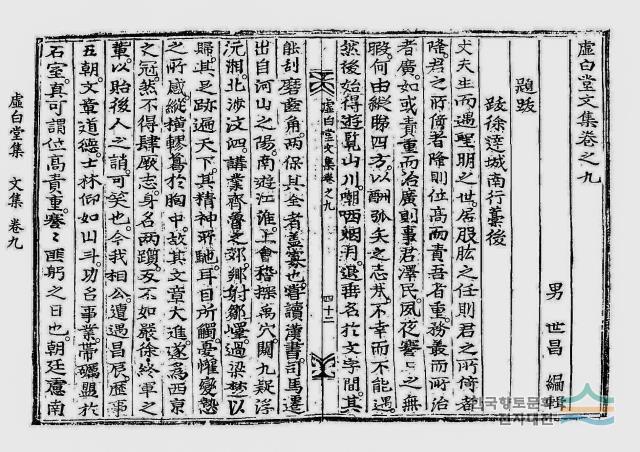 虛白堂文集卷之九
男 世昌 編輯
題跋
跋徐達城南行藁後
丈夫生而遇聖明之世居股肱之任則君之所倚者
隆君之所倚者隆則位高而責吾者重務叢而所治
者廣如或責重而治廣則事君澤民夙夜謇謇之無
暇何由縱聘四方以酬弧矢之志哉不幸而不能遇
然後始得遊覽山川嘲哂烟月退垂名於文字間其
能刮磨齒角兩保其全者盖寡也嘗讀漢書司馬遷
出自河山之陽南遊江淮上會稽探禹穴闚九疑浮
沅湘北涉汶泗講業齊魯之郊鄉射鄒嶧過梁楚以
歸其足跡遍天下其精神所馳耳目所觸憂懼變愁
之所感縱橫轇轕於胸中故其文章大進遂爲西京
之冠然不得肆厥志身名兩隳反不如嚴徐終軍之
輩以貽後人之誚可笑也今我相公遭遇昌辰歷事
五朝文章道德士林仰如山斗功名事業帶礪盟於
石室眞可謂位高責重謇謇匪躬之日也朝廷慮南
虛白堂文集卷之九
四十二
虛白堂集 文集 卷九
한국향토문화
전자대전